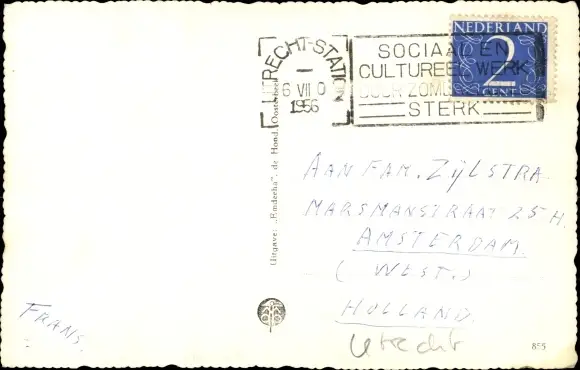 UTRECHT-STATION
6 VII 0
1956
SOCIAAL EN
CULTUREEL WERK
DOOR ZOMER
STERK
NEDERLAND
2
CENT
Uitgave: „Rinderha", de Hond, Oosterbeek
AAN FAM. ZIJLSTRA.
MARSMANSTRAAT 25 H.
AMSTERDAM.
(WEST.)
HOLLAND.
Utrecht
FRANS.
855